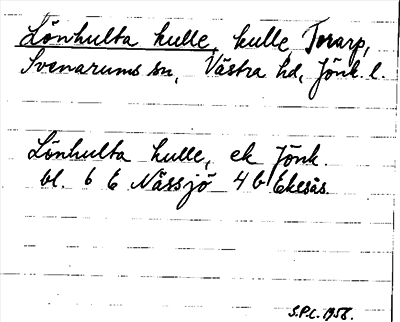 Lönhulta kulle, kulle, Torarp,
Svenarums sn, Västra hd, Jönk. l.
Lönhulta kulle, ek Jönk.
bl. 6 E Nässjö 4 b Ekesås.
S.P.L. 1958.